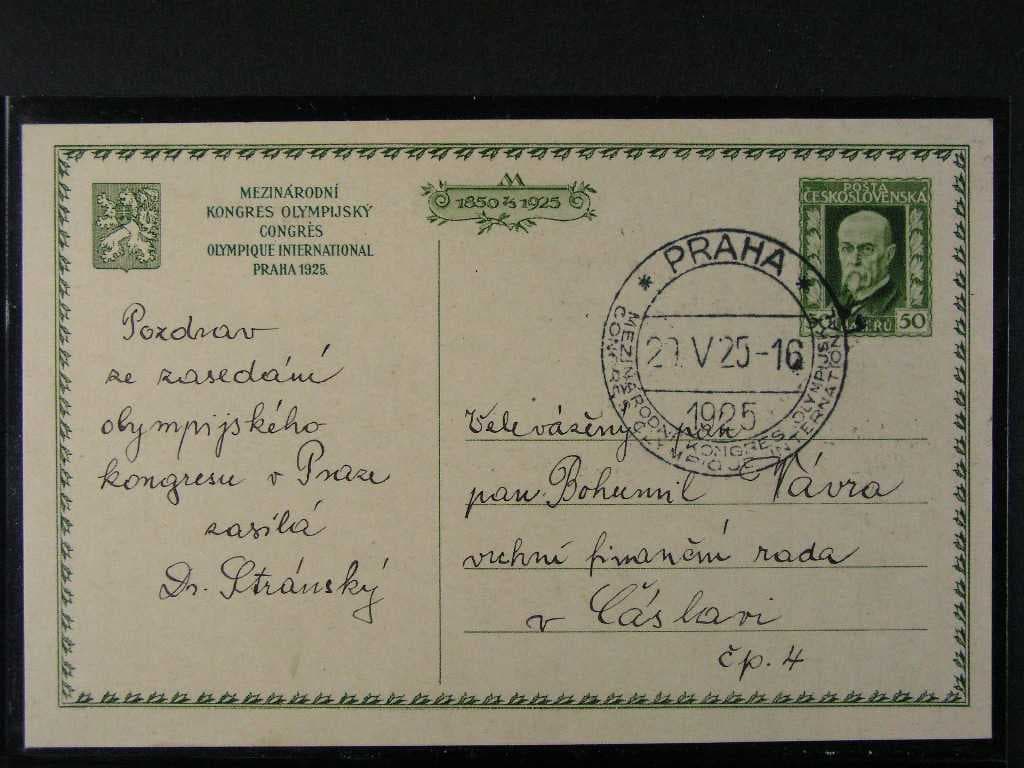 MEZINÁRODNÍ
KONGRES OLYMPIJSKÝ
CONGRÈS
OLYMPIQUE INTERNATIONAL
PRAHA 1925.
1850 7/3 1925
POŠTA
ČESKOSLOVENSKÁ
50
PRAHA
V 25-16
1925
MEZINÁRODNÍ KONGRES OLYMPIJSKÝ
CONGRES OLYMPIQUE INTERNATION
Pozdrav
ze zasedání
olympijského
kongresu v Praze
zasílá
Dr. Stránský
Velevážený pan
pan Bohumil Vávra
vrchní finanční rada
v Čáslavi
čp. 4